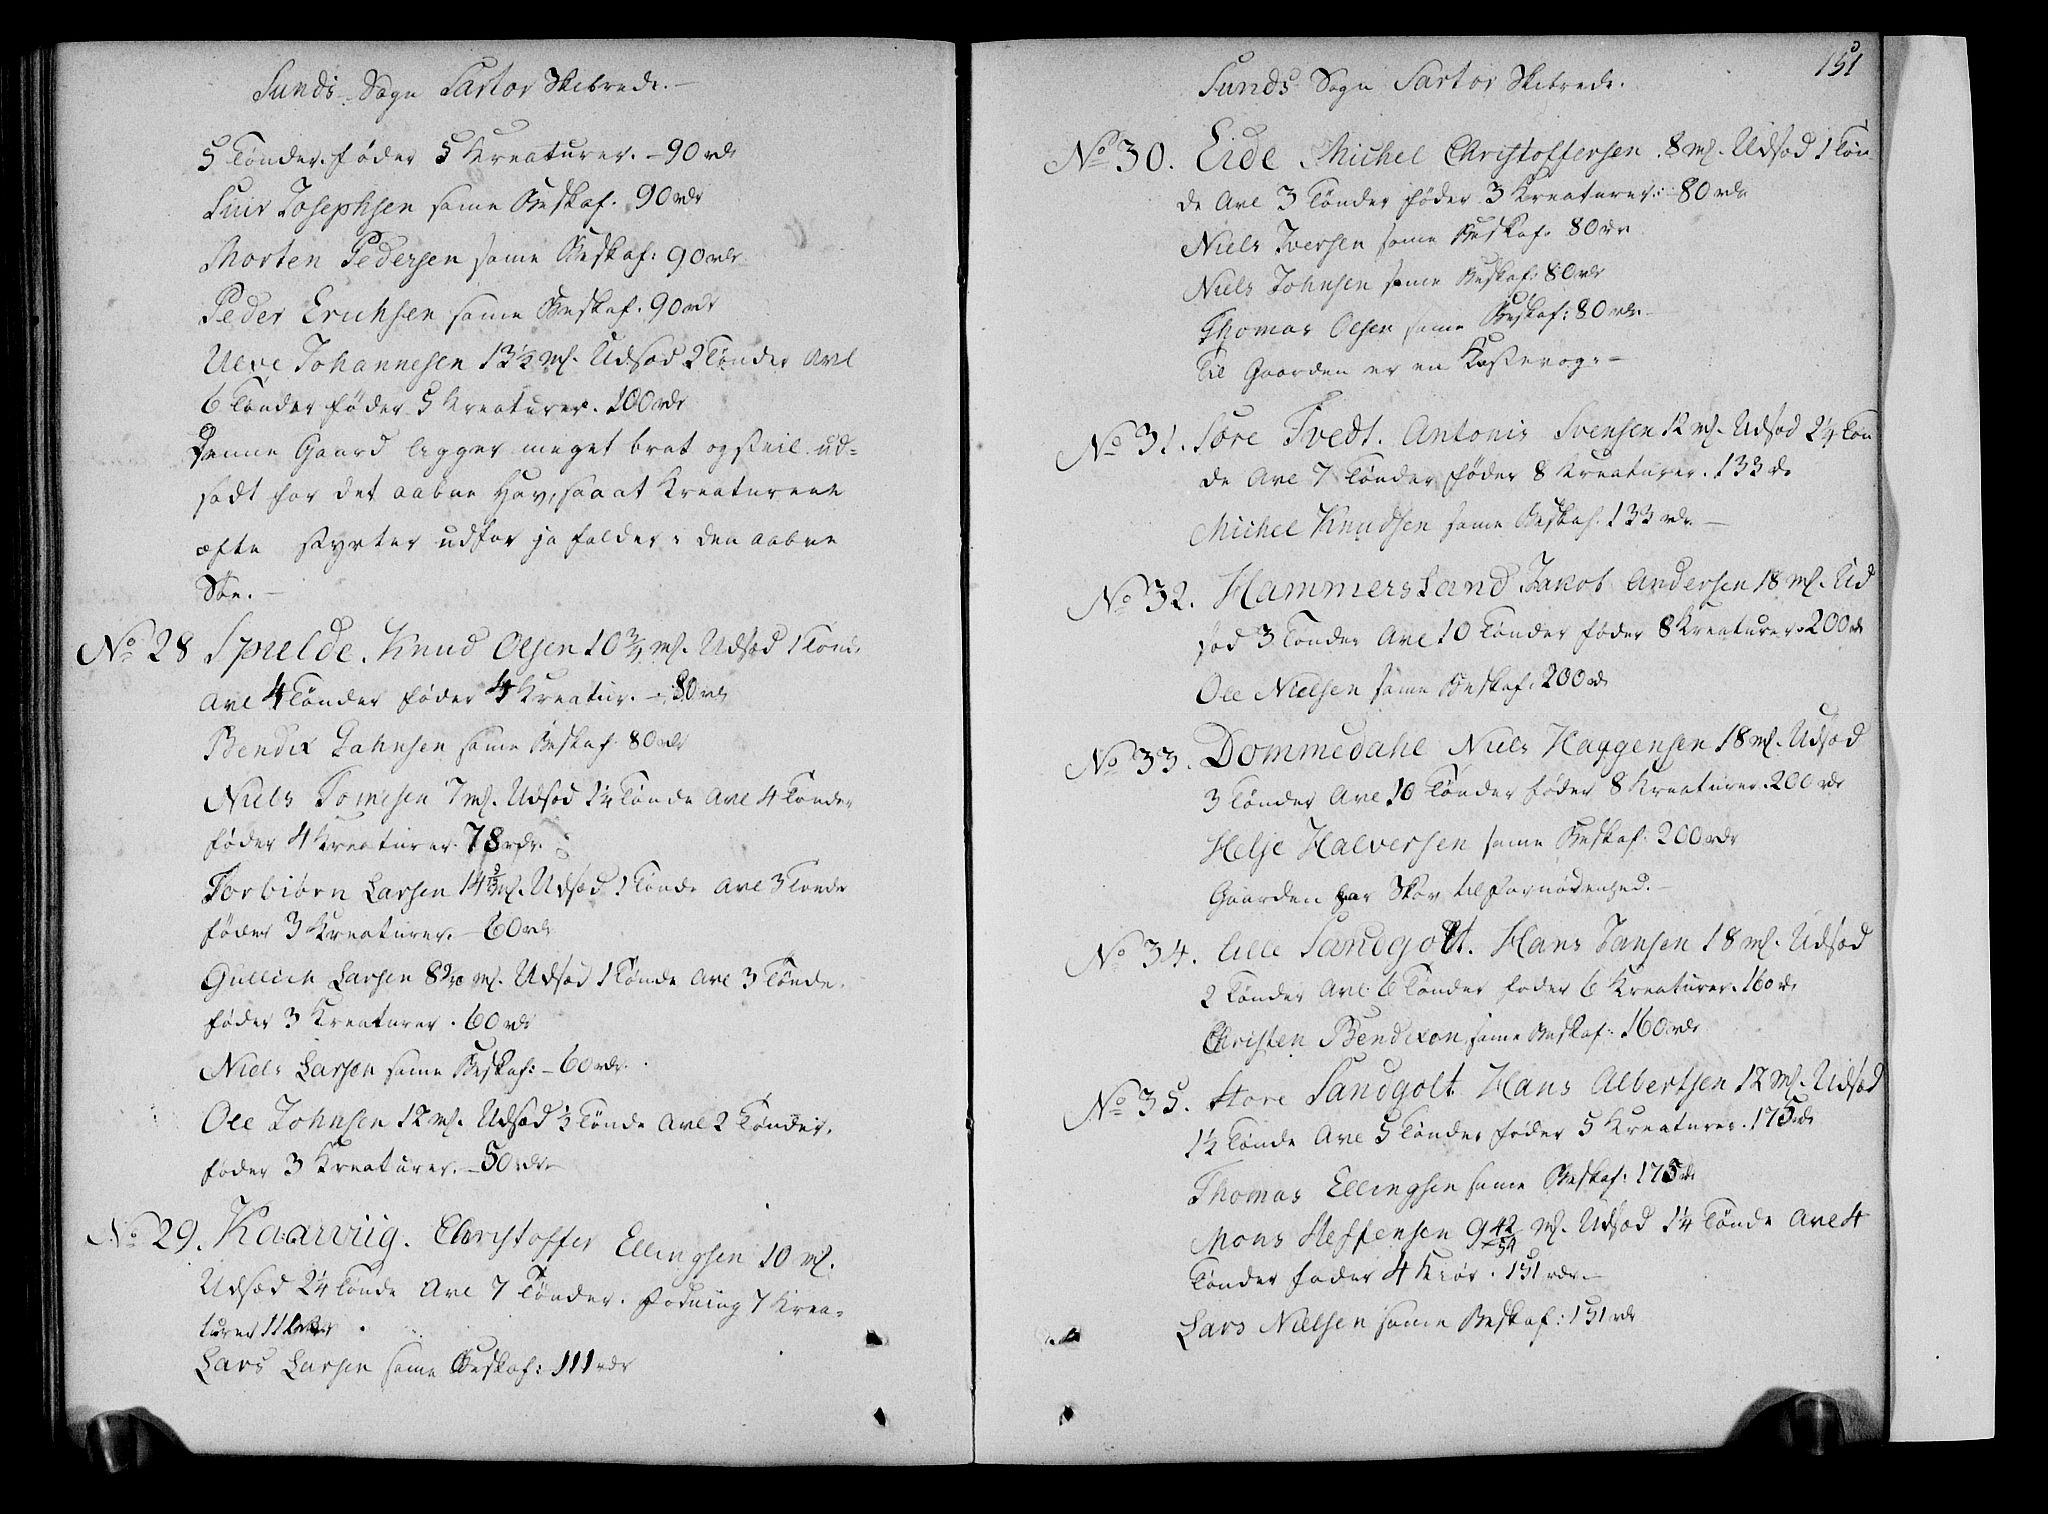 Sunds Sogn Sartor Skibrede. –
5 Tønder. føder 5 Kreaturer. – 90 rdr
Siur Josephsen same Beskaf. 90 rdr
Morten Pedersen same Beskaf: 90 rdr
Peder Erichsen same Beskaf. 90 rdr
Ulve Johannesen 13½ mk. Udsæd 2 Tønder Avl
6 Tønder føder 5 Kreaturer. 100 rdr
Denne Gaard ligger meget brat og steil ud-
sadt for det aabne Hav, saa at Kreaturene
ofte styrter udfor ja falder i den aabne
Søe. –
No 28 Spielde. Knud Olsen 10¾ mk. Udsæd 1 Tønde
Avl 4 Tønder føder 4 Kreatur. – 80 rdr
Bendix Johnsen same Beskaf. 80 rdr
Niels Tomesen 7 mk. Udsæd 1¼ Tønde Avl 4 Tønder
føder 4 Kreaturer. 78 rdr.
Torbiørn Larsen 14 mk. Udsæd 1 Tønde Avl 3 Tønde
føder 3 Kreaturer. – 60 rdr
Gullich Larsen mk. Udsæd 1 Tønde Avl 3 Tønde.
føder 3 Kreaturer. 60 rdr
Niels Larsen same Beskaf: – 60 rdr.
Ole Johnsen 12 mk. Udsæd Tønde Avl 2 Tønder.
føder 3 Kreaturer. – 50 rdr. –
No 29. Kaarviig. Christoffer Ellingsen 10 mk.
Udsæd 2¼ Tønde Avl 7 Tønder. Fødning 7 Krea-
turer 111 rdr
Lars Larsen same Beskaf: 111 rdr
151
Sunds Sogn Sartor Skibrede.
No 30. Eide Michel Christoffersen 8 mk. Udsæd 1 Tøn-
de Avl 3 Tønder føder 3 Kreaturer: 80 rdr
Niels Iversen same Beskaf. 80 rdr
Niels Johnsen same Beskaf: 80 rdr
Thomas Olsen same Beskaf: 80 rdr. –
Til Gaarden er en Kastevog. –
No 31. Søre Tvedt. Antonis Svensen 12 mk. Udsæd 2¼ Tøn
de Avl 7 Tønder føder 8 Kreaturer. 133 rdr
Michel Knudsen same Beskaf. 133 rdr. –
No 32. Hammersland Jakob Andersen 18 mk. Ud
sæd 3 Tønder Avl 10 Tønder føder 8 Kreaturer. 200 rdr
Ole Nielsen same Beskaf. 200 rdr
No 33. Dommedahl Niels Haggensen 18 mk. Udsæd
3 Tønder Avl 10 Tønder føder 8 Kreaturer. 200 rdr
Helje Halversen same Beskaf: 200 rdr
Gaarden har Skov til Fornødenhed. –
No 34. lille Sandgolt. Hans Jansen 18 mk. Udsæd
2 Tønder Avl 6 Tønder føder 6 Kreaturer. 160 rdr
Christen Bendixen same Beskaf: 160 rdr
No 35. store Sandgolt Hans Albertsen 12 mk. Udsæd
1½ Tønde Avl 5 Tønder føder 5 Kreaturer. 175 rdr
Thomas Ellingsen same Beskaf: 175 rdr
Mons Steffensen 9 42/54 mk. Udsæd 1¼ Tønde Avl 4
Tønder føder 4 Kiør. 151 rdr. –
Lars Nielsen same Beskaf: 151 rdr